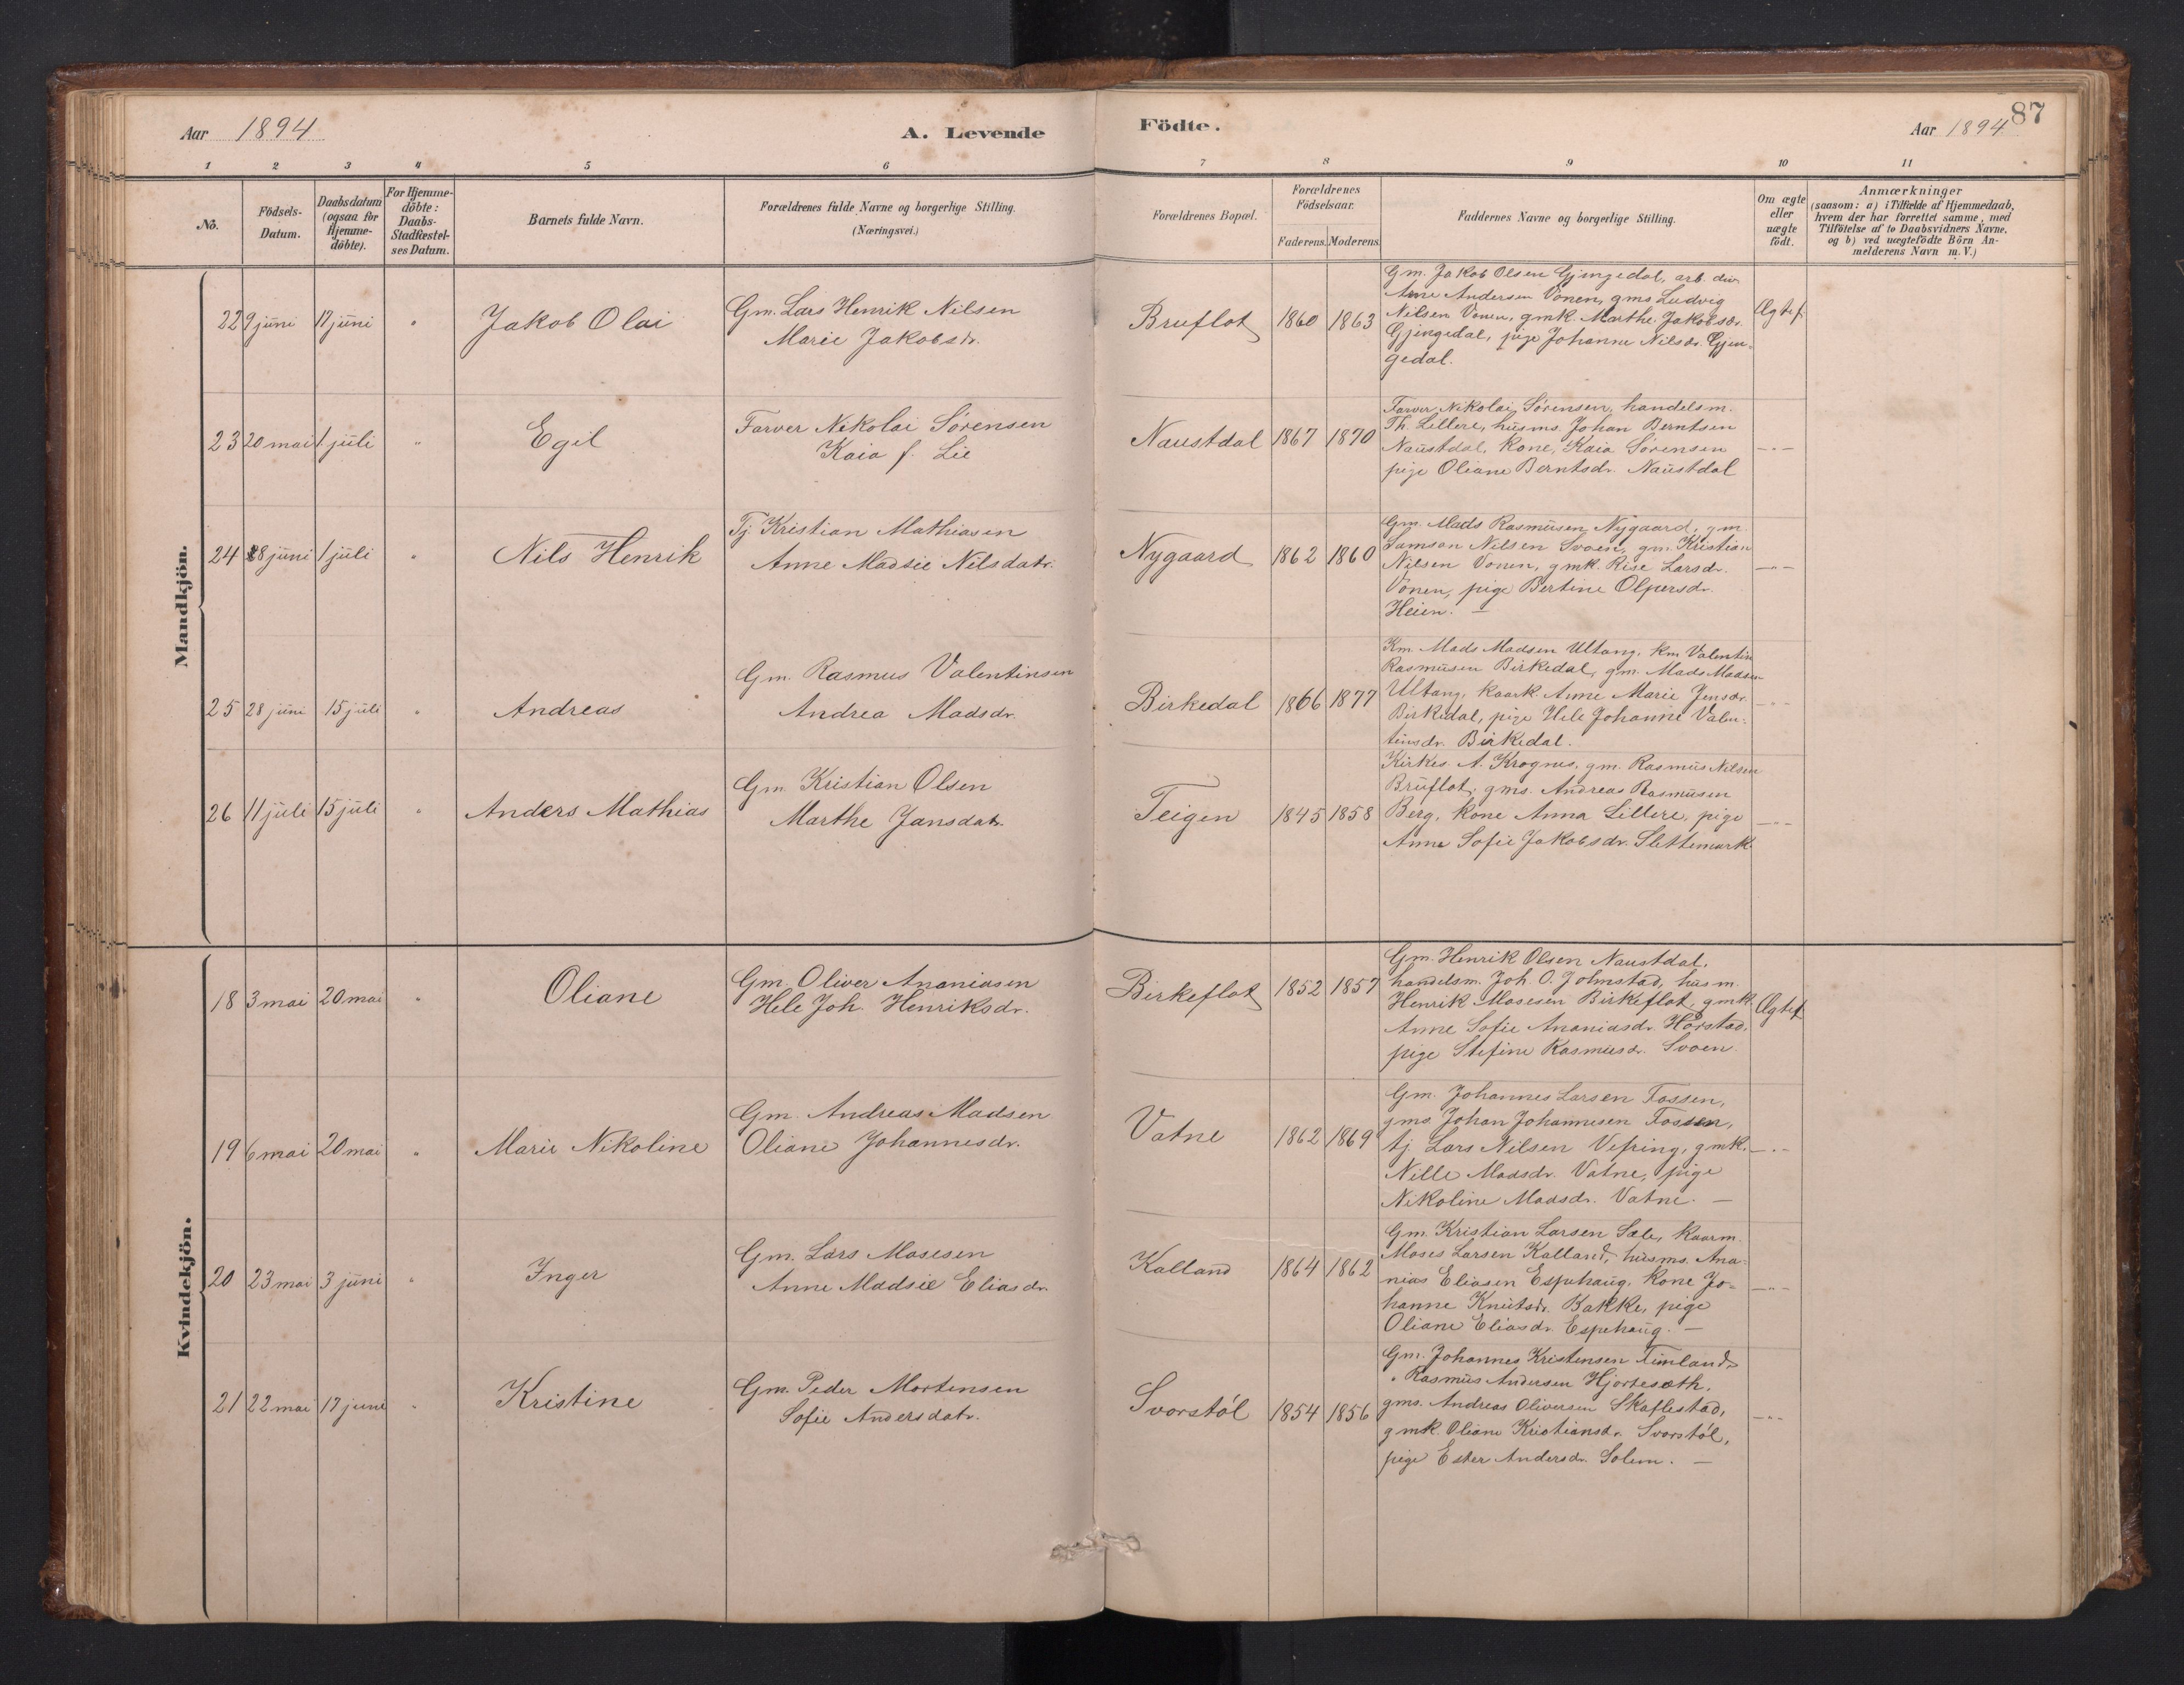 Aar 1894 A. Levende
Födte. Aar 1894 87
1 2 3 4 5 6 7 8 9 10 11
No.
Födsels-
Datum.
Daabsdatum
(ogsaa for
Hjemme-
döbte).
For Hjemme-
döbte:
Daabs-
Stadfæstel-
ses Datum.
Barnets fulde Navn.
Forældrenes fulde Navne og borgerlige Stilling.
(Næringsvei.)
Forældrenes Bopæl.
Forældrenes
Födselsaar.
Faderens. Moderens.
Faddernes Navne og borgerlige Stilling.
Om ægte
eller
uægte
födt.
Anmærkninger
(saasom: a) i Tilfælde af Hjemmedaab,
hvem der har forrettet samme, med
Tilföielse af to Daabsvidners Navne,
og b) ved uægtefödte Börn An-
melderens Navn m.V.)
Mandkjön.
22 9 juni 17 juni " Jakob Olai
Gm. Lars Henrik Nilsen
Marie Jakobsdr.
Bruflot 1860 1863
Gm. Jakob Olsen Gjengedal, arb. do
Arne Andersen Vonen, gms Ludvig
Nilsen Vonen, gmk. Marthe Jakobsdr.
Gjengedal, pige Johanne Nilsdr. Gjen-
gedal.
Ægtef.
23 20 mai 1 juli " Egil
Farver Nikolai Sörensen
Kaia f. Lie
Naustdal 1867 1870
Farver Nikolai Sörensen, handelsm.
Th. Lillere, husms. Johan Berntsen
Naustdal, Kone, Kaia Sörensen
pige Oliane Berntsdr. Naustdal
—"—
24 28 juni 1 juli " Nils Henrik
Tj. Kristian Mathiasen
Anne Madsie Nilsdatr.
Nygaard 1862 1860
Gm. Mads Rasmusen Nygaard, gm.
Samson Nilsen Svoen, gm. Kristian
Nilsen Vonen, gmk. Rise Larsdr.
Vonen, pige Bertine Olpersdr.
Heien. —
—"—
25 28 juni 15 juli " Andreas
Gm. Rasmus Valentinsen
Andrea Madsdr.
Birkedal 1866 1877
Km. Mads Madsen Ultang, Km Valentin
Rasmusen Birkedal, gm. Mads Madsen
Ultang, kaark. Anne Marie Jensdr.
Birkedal, pige Hele Johanne Valen-
tinsdr. Birkedal.
—"—
26 11 juli 15 juli " Anders Mathias
Gm. Kristian Olsen
Marthe Jansdatr.
Teigen 1845 1858
Kirkes. A. Krognes, gm. Rasmus Nilsen
Bruflot, gms. Andreas Rasmusen
Berg, Kone Anna Lillere, pige
Anne Sofie Jakobsdr. Slettemark.
—"—
Kvindekjön.
18 3 mai 20 mai " Oliane
Gm. Oliver Ananiasen
Hele Joh. Henriksdr.
Birkeflot 1852 1857
Gm. Henrik Olsen Naustdal,
handelsm. Joh. O. Jolmstad, husm.
Henrik Mosesen Birkeflot, gmk.
Anne Sofie Ananiasdr. Horstad,
pige Stefine Rasmusdr. Svoen.
Ægtef.
19 6 mai 20 mai " Marie Nikoline
Gm. Andreas Madsen
Oliane Johannesdr.
Vatne 1862 1869
Gm. Johannes Larsen Fossen,
gms Johan Johannesen Fossen,
tj. Lars Nilsen Vefring, gmk.
Nille Madsdr. Vatne, pige
Nikoline Madsdr. Vatne. —
—"—
20 23 mai 3 juni " Inger
Gm. Lars Mosesen
Anne Madsie Eliasdr.
Kalland 1864 1862
Gm. Kristian Larsen Sæle, kaarm.
Moses Larsen Kalland, husms. Ana-
nias Eliasen Espehaug, Kone Jo-
hanne Knutsdr. Bakke, pige
Oliane Eliasdr. Espehaug. —
—"—
21 22 mai 17 juni " Kristine
Gm. Peder Mortensen
Sofie Andersdatr.
Svorstöl 1854 1856
Gm. Johannes Kristensen Timland,
" Rasmus Andersen Hjortesæth,
gms. Andreas Oliversen Skaflestad,
gmk. Oliane Kristiansdr. Svorstöl,
pige Ester Andersdr. Solem. —
—"—